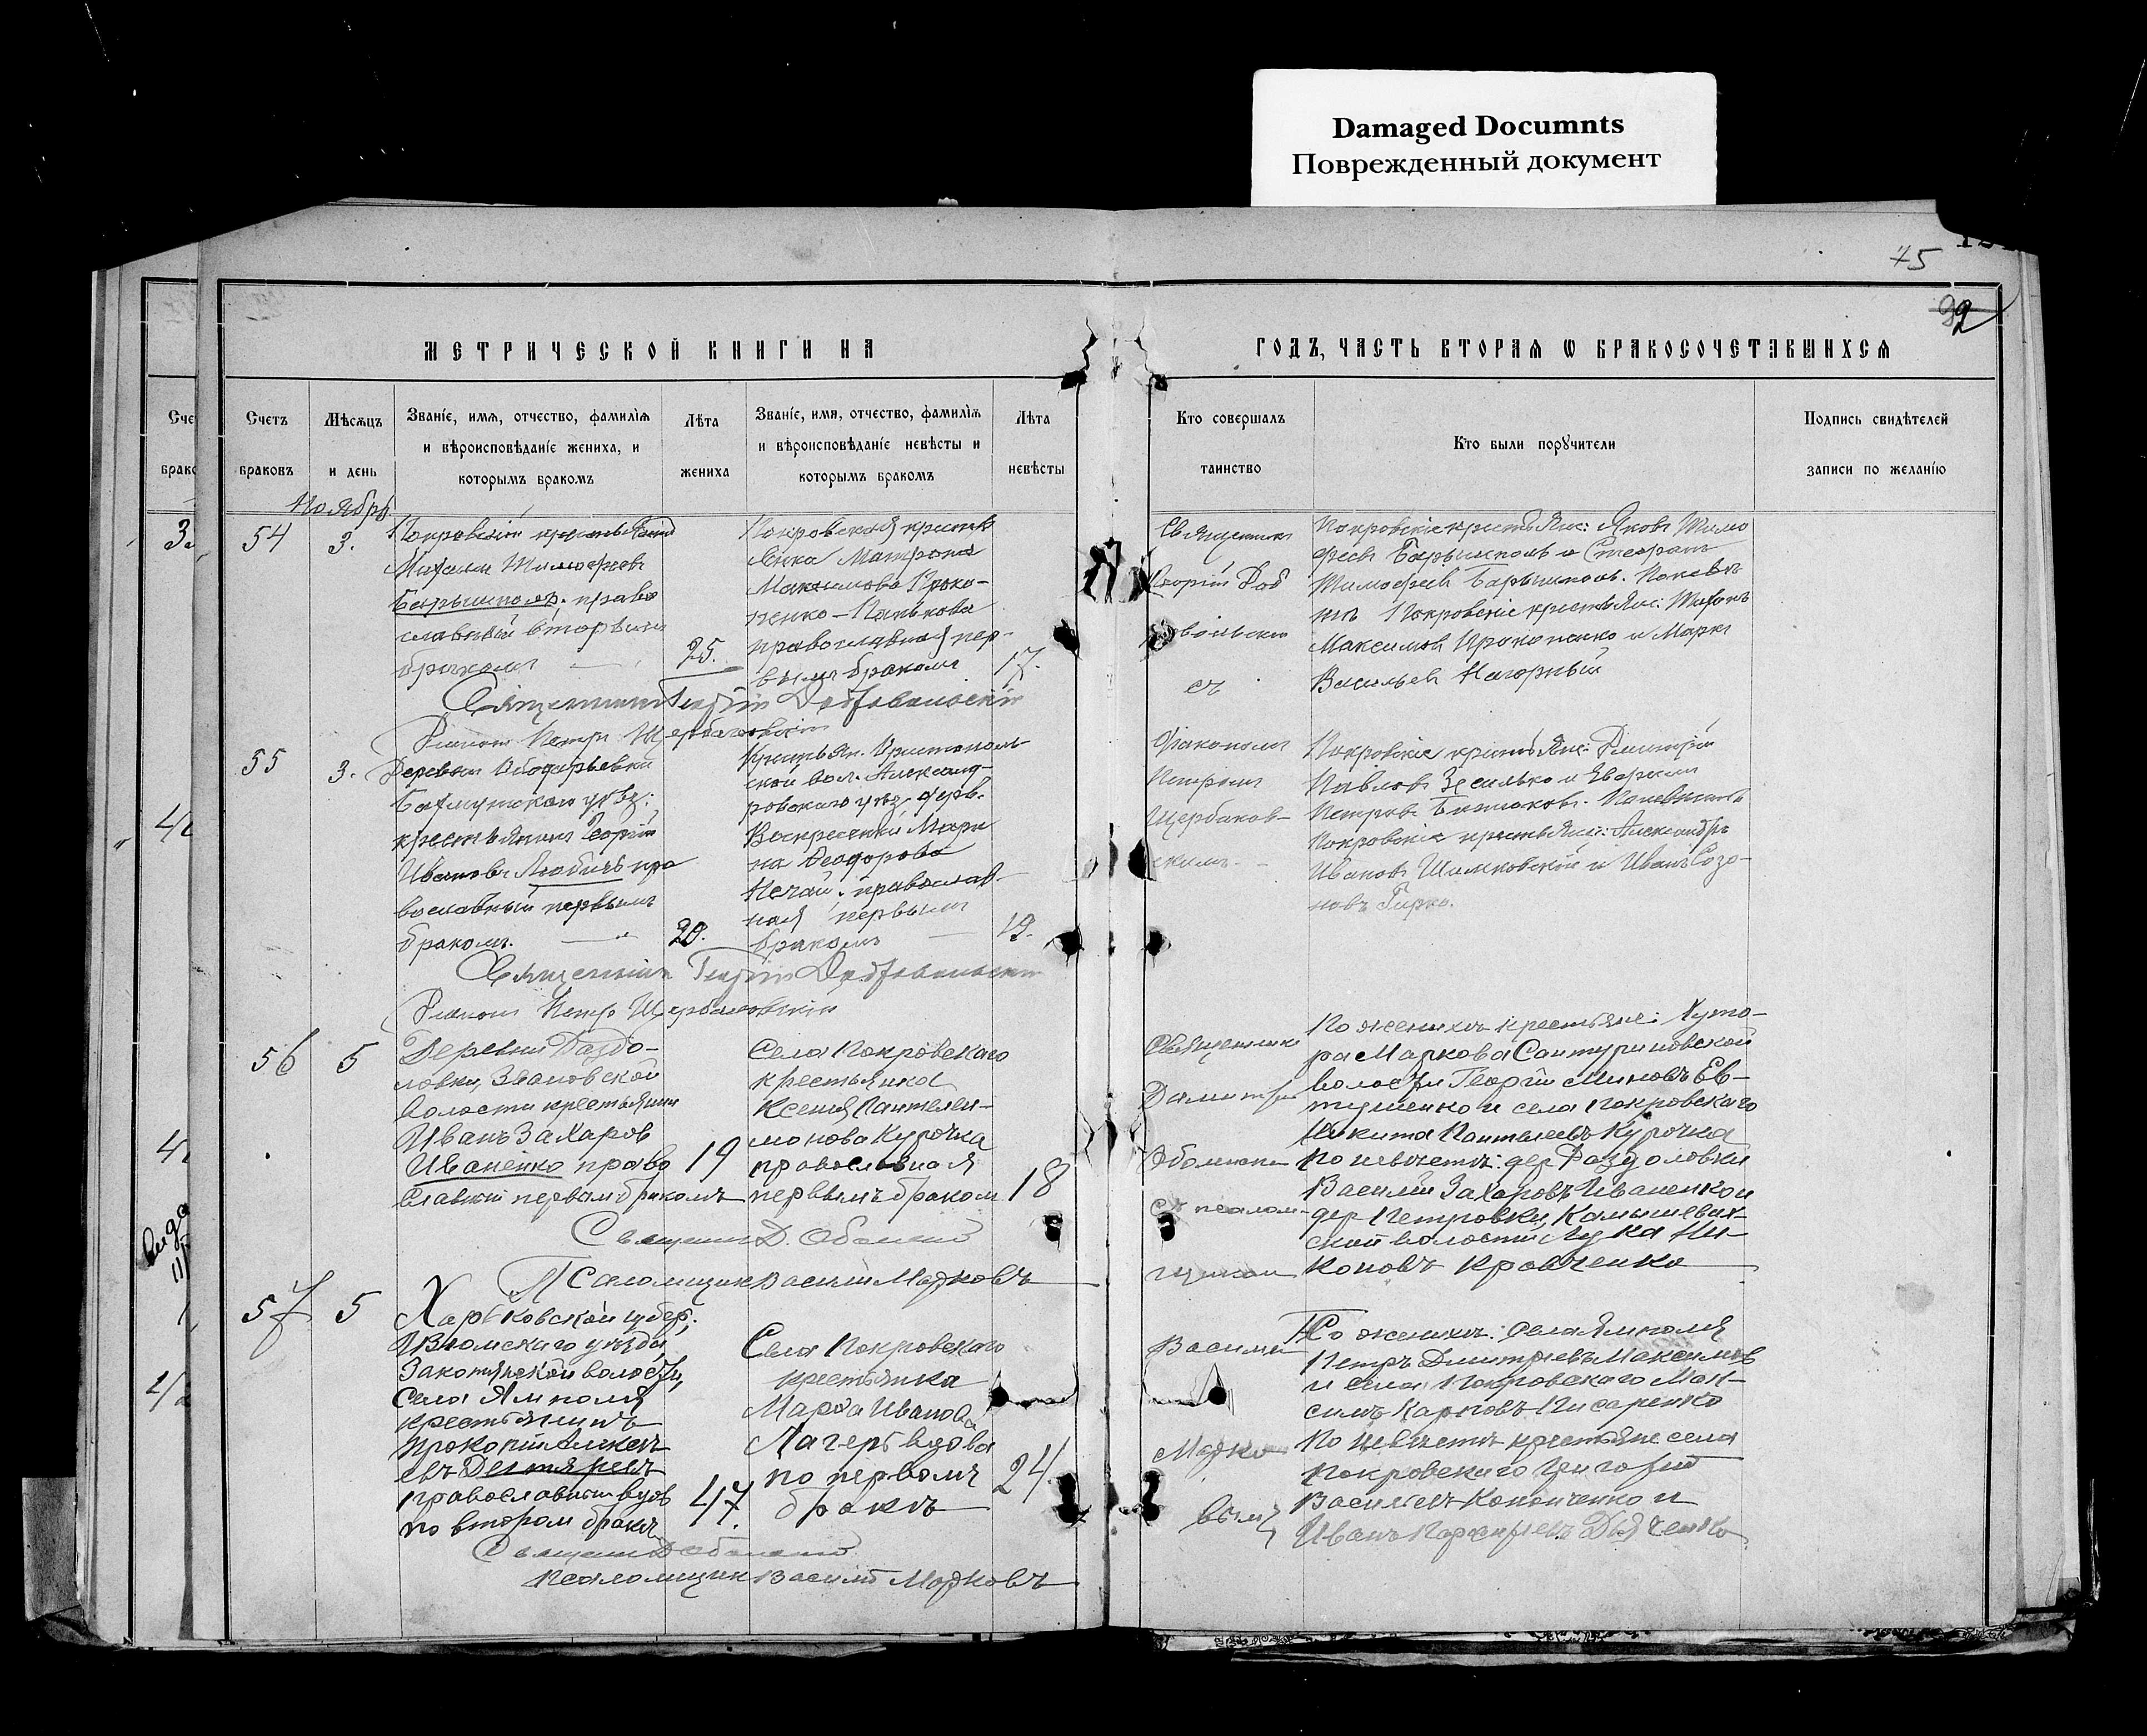 Damaged Documnts
Поврежденный документ
75
МЕТРИЧЕСКОЙ КНИГИ НА
ГОДЪ, ЧАСТЬ ВТОРАЯ Ѡ БРАКОСОЧЕТАВШИХСЯ
Счетъ браковъ
Мѣсяцъ и день
Званіе, имя, отчество, фамилія
и вѣроисповѣданіе жениха, и
которымъ бракомъ
Лѣта
жениха
Званіе, имя, отчество, фамилія
и вѣроисповѣданіе невѣсты и
которымъ бракомъ
Лѣта
невѣсты
Кто совершалъ
таинство
Кто были поручители
Подпись свидѣтелей
записи по желанію
Ноябрь
54
3.
Покровскій
Михаилъ Тимофеевъ
Барышполь, право
славный вторымъ
бракомъ
25.
Покровская крестья
Матрона
Максимова Проко-
пенко-Панькова
православная пер-
вымъ бракомъ
17.
Священникъ
Георгій Доб
ровольскій
съ
Діакономъ
Петромъ
Щербаков-
скимъ
Покровскіе крестьяне: Яковъ Тимо
феевъ Барышполь и Стефанъ
Тимофеевъ Барышполь. По невѣс
тѣ Покровскіе крестьяне:
Максимовъ Прокопенко и Маркъ
Васильевъ Нагорный
Священникъ Георгій Добровольскій
Діаконъ Петръ Щербаковскій
55
3.
Деревни
Бахмутскаго уѣз:
крестьянинъ Георгій
Ивановъ Любичъ пра
вославный первымъ
бракомъ.
20.
Крестьян.
ской вол. Александ-
ровскаго уѣз. дерв.
Воскресенки Мари
на Ѳеодорова
Нечай, православ-
ная первымъ
бракомъ
19.
Покровскіе крестьяне: Димитрій
Павловъ
Петровъ
Покровскіе крестьяне: Александръ
Ивановъ Шимковскій и Иванъ Созо-
новъ Гирко.
Священникъ Георгій Добровольскій
Діаконъ Петръ Щербаковскій
56
5
Деревни Раздо-
ловки, Звановской
волости крестьянинъ
Иванъ Захаровъ
Иваненко право
славный первымъ бракомъ
19
Села Покровскаго
крестьянка
Ксенія Пантелеи-
монова Курочка
православная
первымъ бракомъ
18
Священникъ
Димитрій
Оболенскій
съ псалом-
щикомъ
По женихѣ крестьяне: Хуто-
ра Маркова Сантуриновской
волости Георгій Миновъ Ев-
тушенко и села Покровскаго
Никита Пантелеевъ Курочка
по невѣстѣ: дер Раздоловки
Василій Захаровъ Иваненко и
дер Петровки, Камышевах-
ской волости Лука Ни-
коновъ Кравченко
Священникъ Д. Оболенскій
Псаломщикъ Василій Марковъ
57
5
Харьковской губер,
Изюмскаго уѣзда
волости,
Села Ямполя
крестьянинъ
Прокопій Алексѣ-
евъ Дегтяревъ
православный вдов
по втором бракѣ
47.
Села Покровскаго
крестьянка
Марѳа Иванова
Лагерь вдова
по первомъ
бракѣ
24
Василіемъ
Марко
вымъ
По женихѣ: села Ямполя
Петръ Димитріевъ Максимовъ
и села Покровскаго Мак-
симъ Карповъ Писаренко
По невѣстѣ крестьяне села
Покровскаго Григорій
Васильевъ Кононченко и
Иванъ Порфирьевъ Дядченко
Священникъ Д Оболенскій
Псаломщикъ Василій Марковъ